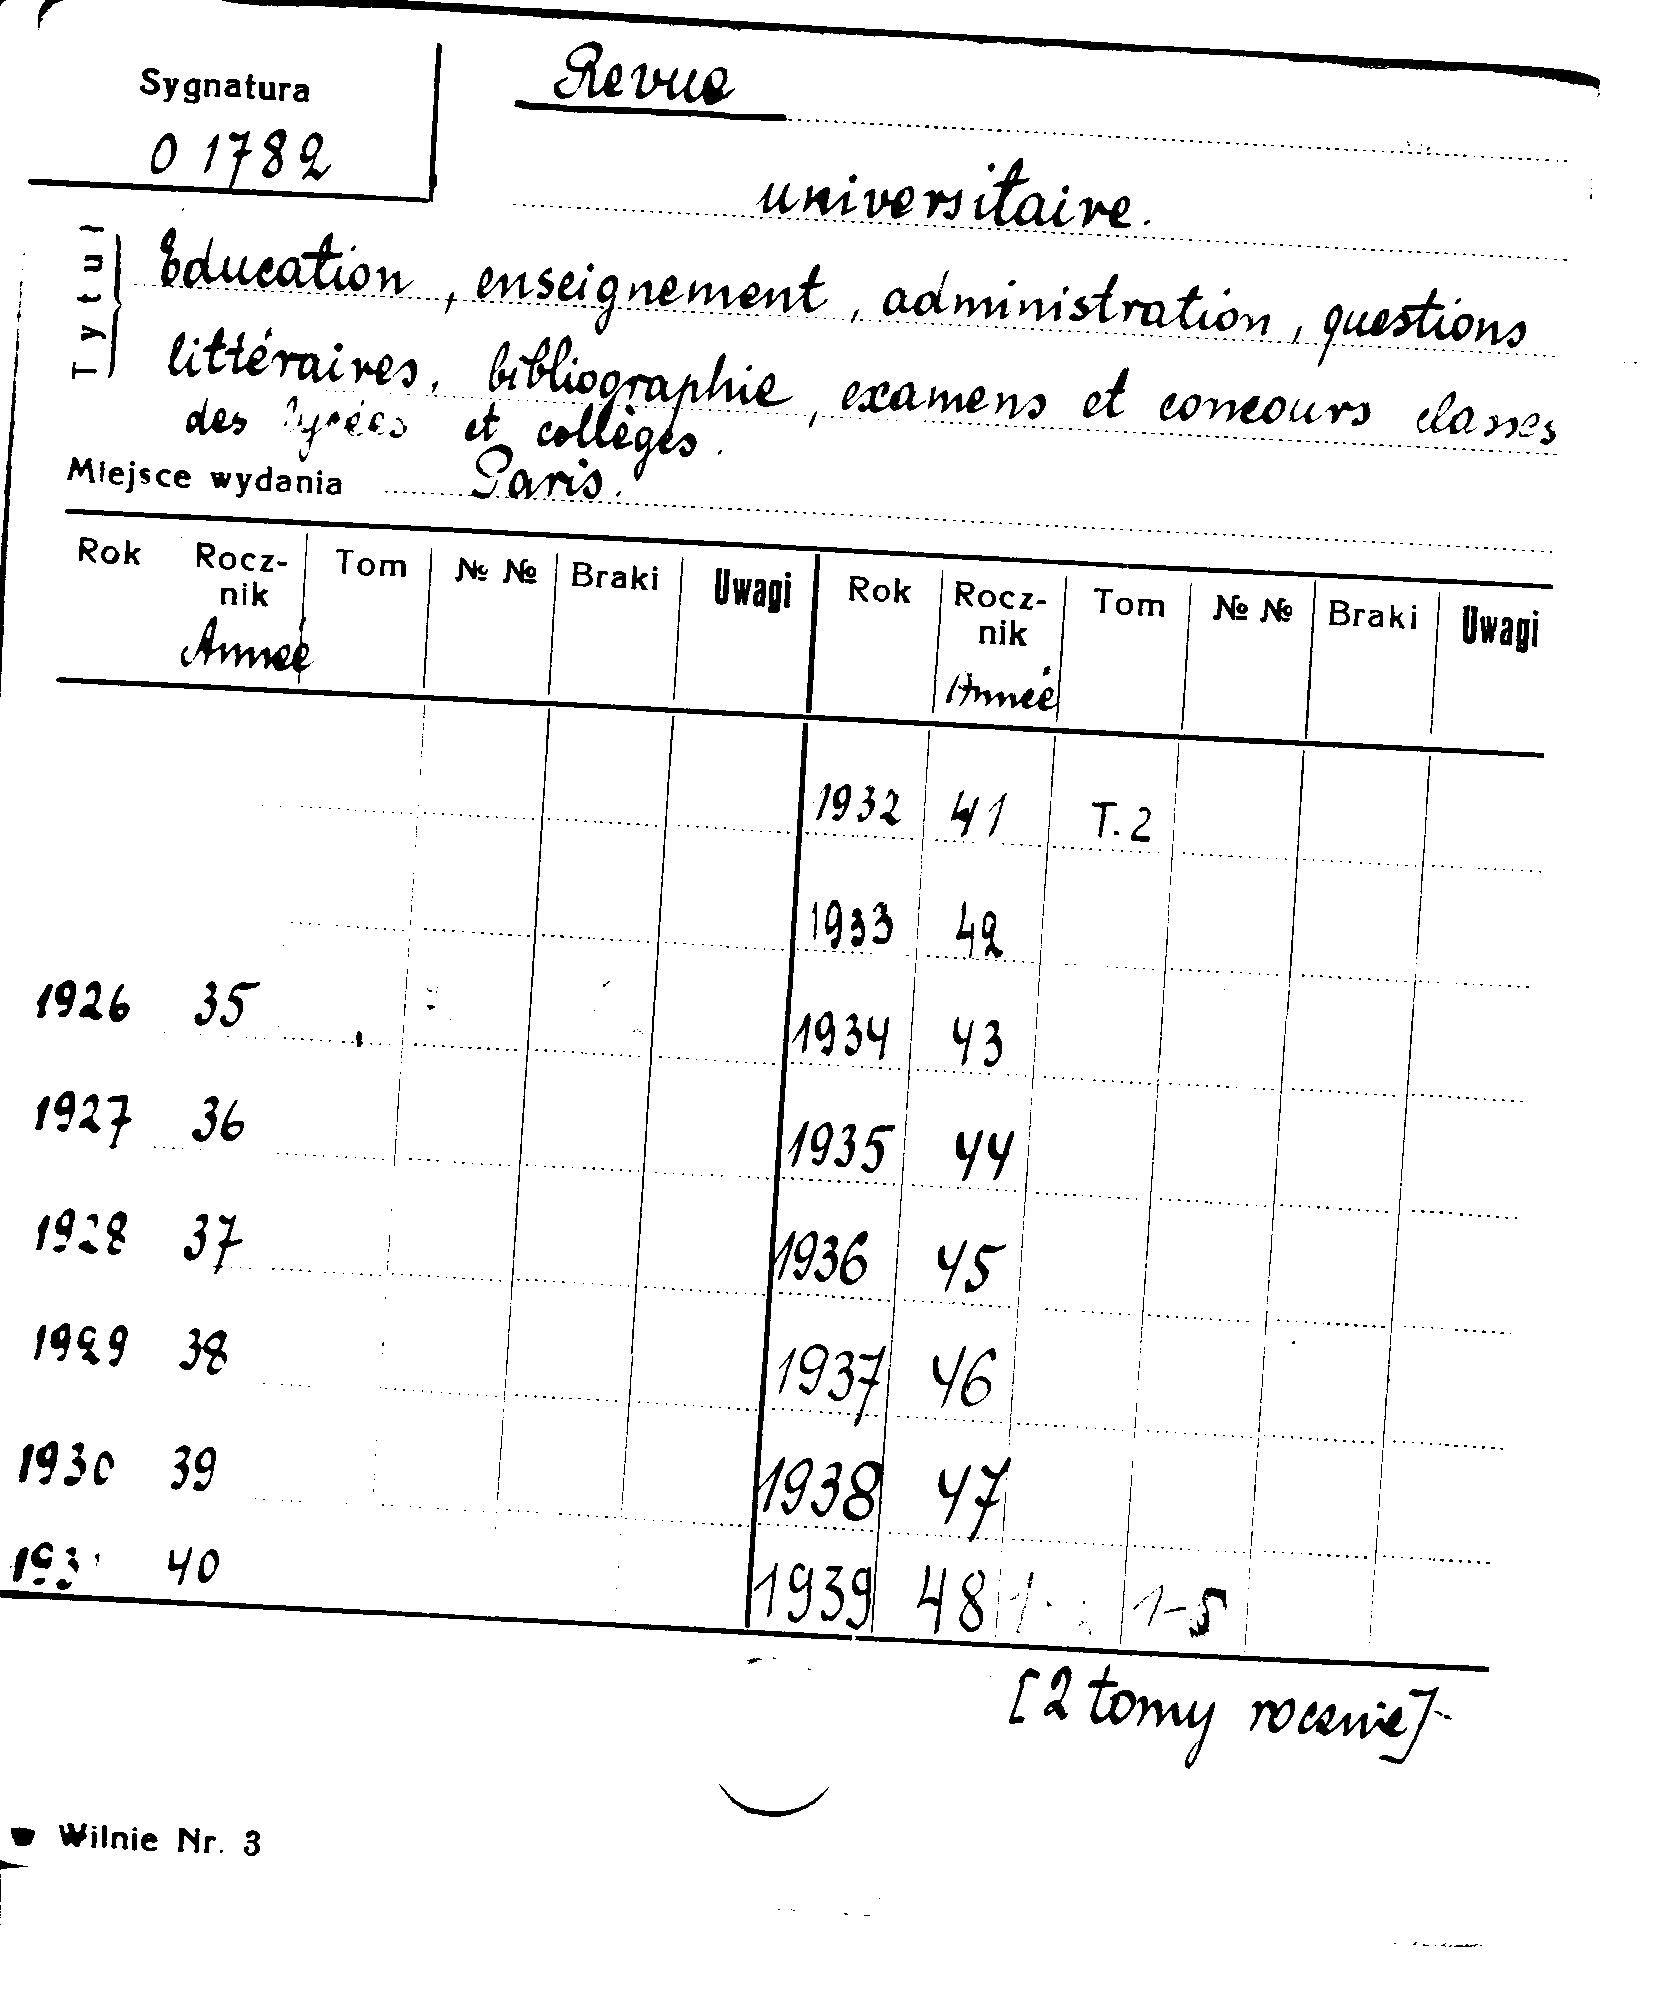 Sygnatura
O 1782
Revue
universitaire.
Tytuł
Education, enseignement, administration, questions
littéraires, bibliographie, examens et concours classes
des lycées et collèges.
Miejsce wydania Paris.
Rok Rocz- Tom № № Braki Uwagi Rok Rocz- Tom № № Braki Uwagi
nik nik
Année Année
1932 41 T. 2
1933 42
1926 35 1934 43
1927 36 1935 44
1928 37 1936 45
1929 38 1937 46
1930 39 1938 47
40 1939 48 1-5
[2 tomy rocznie]
Wilnie Nr. 3